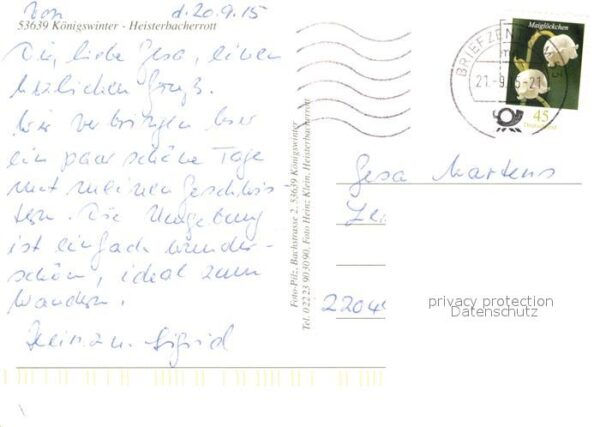 Von d. 20.9.15
53639 Königswinter - Heisterbacherrott
Dir, liebe Gesa, einen
herzlichen Gruß.
Wir verbringen hier
ein paar schöne Tage
mit meinen Geschwis-
tern. Die Umgebung
ist einfach wunder-
schön, ideal zum
Wandern.
Sigrid
Foto-Pilz, Bachstrasse 2, 53639 Königswinter
Tel. 02223 903090, Foto Heinz Klein, Heisterbacherrott
BRIEFZEN
21.-9.15-21
Maiglöckchen
45
Deutschland
Gesa Martens
2204
privacy protection
Datenschutz